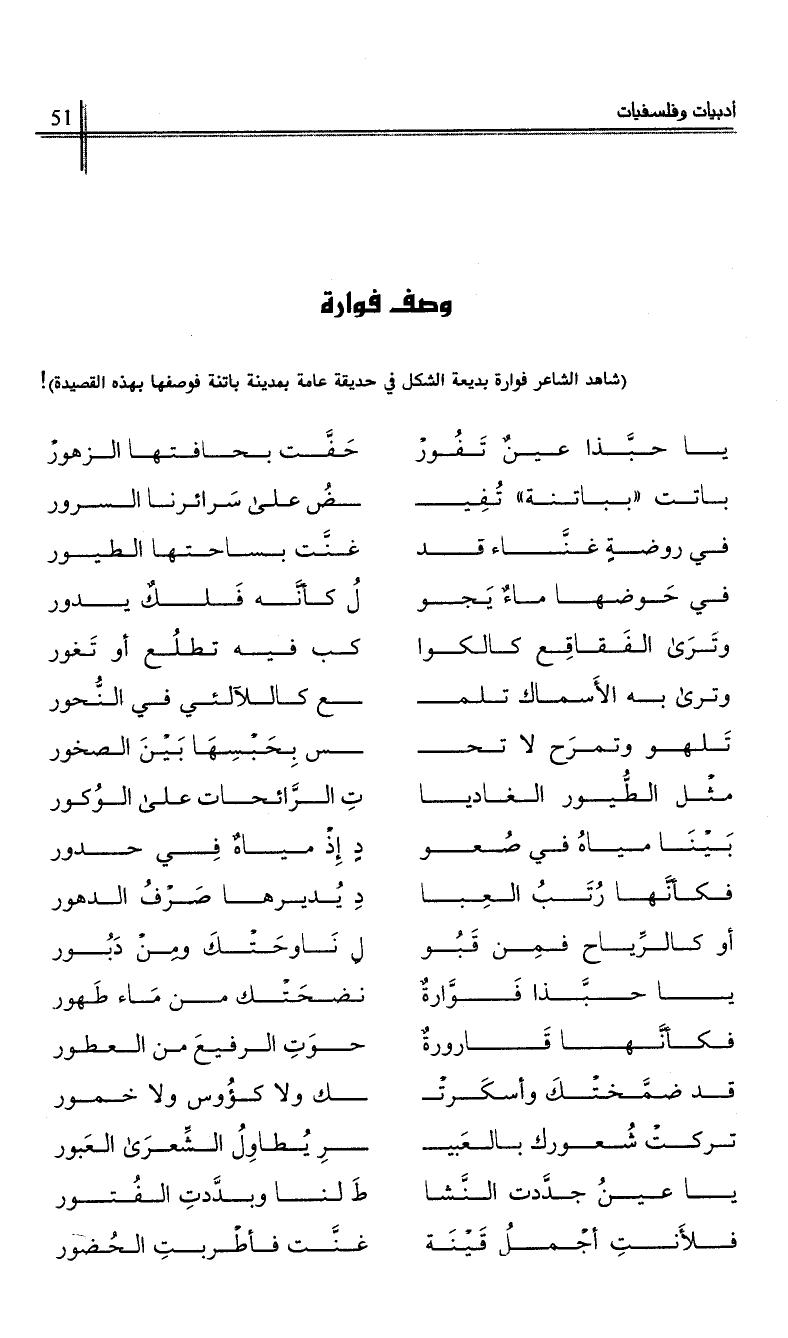 أدبيات وفلسفيات 51
وصف فوارة
(شاهد الشاعر فوارة بديعة الشكل في حديقة عامة بمدينة باتنة فوصفها بهذه القصيدة)!
يا حبَّذا عينٌ تَفُورْ حَفَّت بحافتها الزهورْ
باتت «بباتنة» تُفِيـ ـضُ على سَرائرنا السرور
في روضةٍ غنَّاء قد غنَّت بساحتها الطيور
في حَوضها ماءٌ يَجو لُ كأنَّه فَلكٌ يدور
وتَرَى الفَقاقِع كالكوا كب فيه تطلُع أو تَغور
وترى به الأسماك تلمـ ـع كاللآلئي في النُّحور
تَلهو وتمرَح لا تحـ ـس بِحَبْسِهَا بَيْنَ الصخور
مثْل الطُّيور الغاديا تِ الرَّائحات على الوُكور
بَيْنَا مياهُ في صُعو دٍ إذْ مياهٌ فِي حدور
فكأنَّها رُتَبُ العِبا دِ يُديرها صَرْفُ الدهور
أو كالرِّياح فمِن قَبُو ل نَاوحَتْكَ ومِنْ دَبُور
يا حبَّذا فَوَّارةٌ نضحَتْك من مَاء طَهور
فكأنَّها قَارورةٌ حوَتِ الرفيعَ من العطور
قد ضمَّختْكَ وأسكَرتْـ ـك ولا كؤُوس ولا خمور
تركتْ شُعورك بالعَبيـ ـرِ يُطاولُ الشِّعرَى العَبور
يا عينُ جدَّدت النَّشا طَ لنا وبدَّدتِ الفُتور
فلأَنتِ أجْملُ قَيْنَة غنَّت فأطْربتِ الحُضور